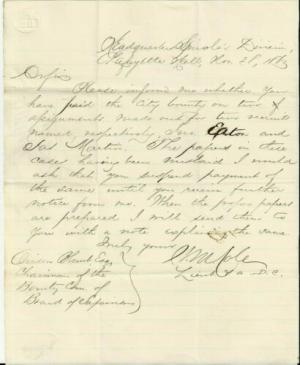 Headquarters Spinola's Division,
Lafayette Hall, Nov. 28, 1863
Please inform me whether you
have paid the City bounty on two
assignments made out for two recruits
named, respectively, Eaton and
Jas Martin. The papers in these
cases having been mislaid I would
ask that you suspend payment of
the same until you receive further
notice from me. When the proper papers
are prepared I will send them to
you with a note explaining the same.
Truly yours
Orison Blunt Esq.
Chairman of the
Bounty Com. of
Board of Supervisors
Lieut &a D.C.